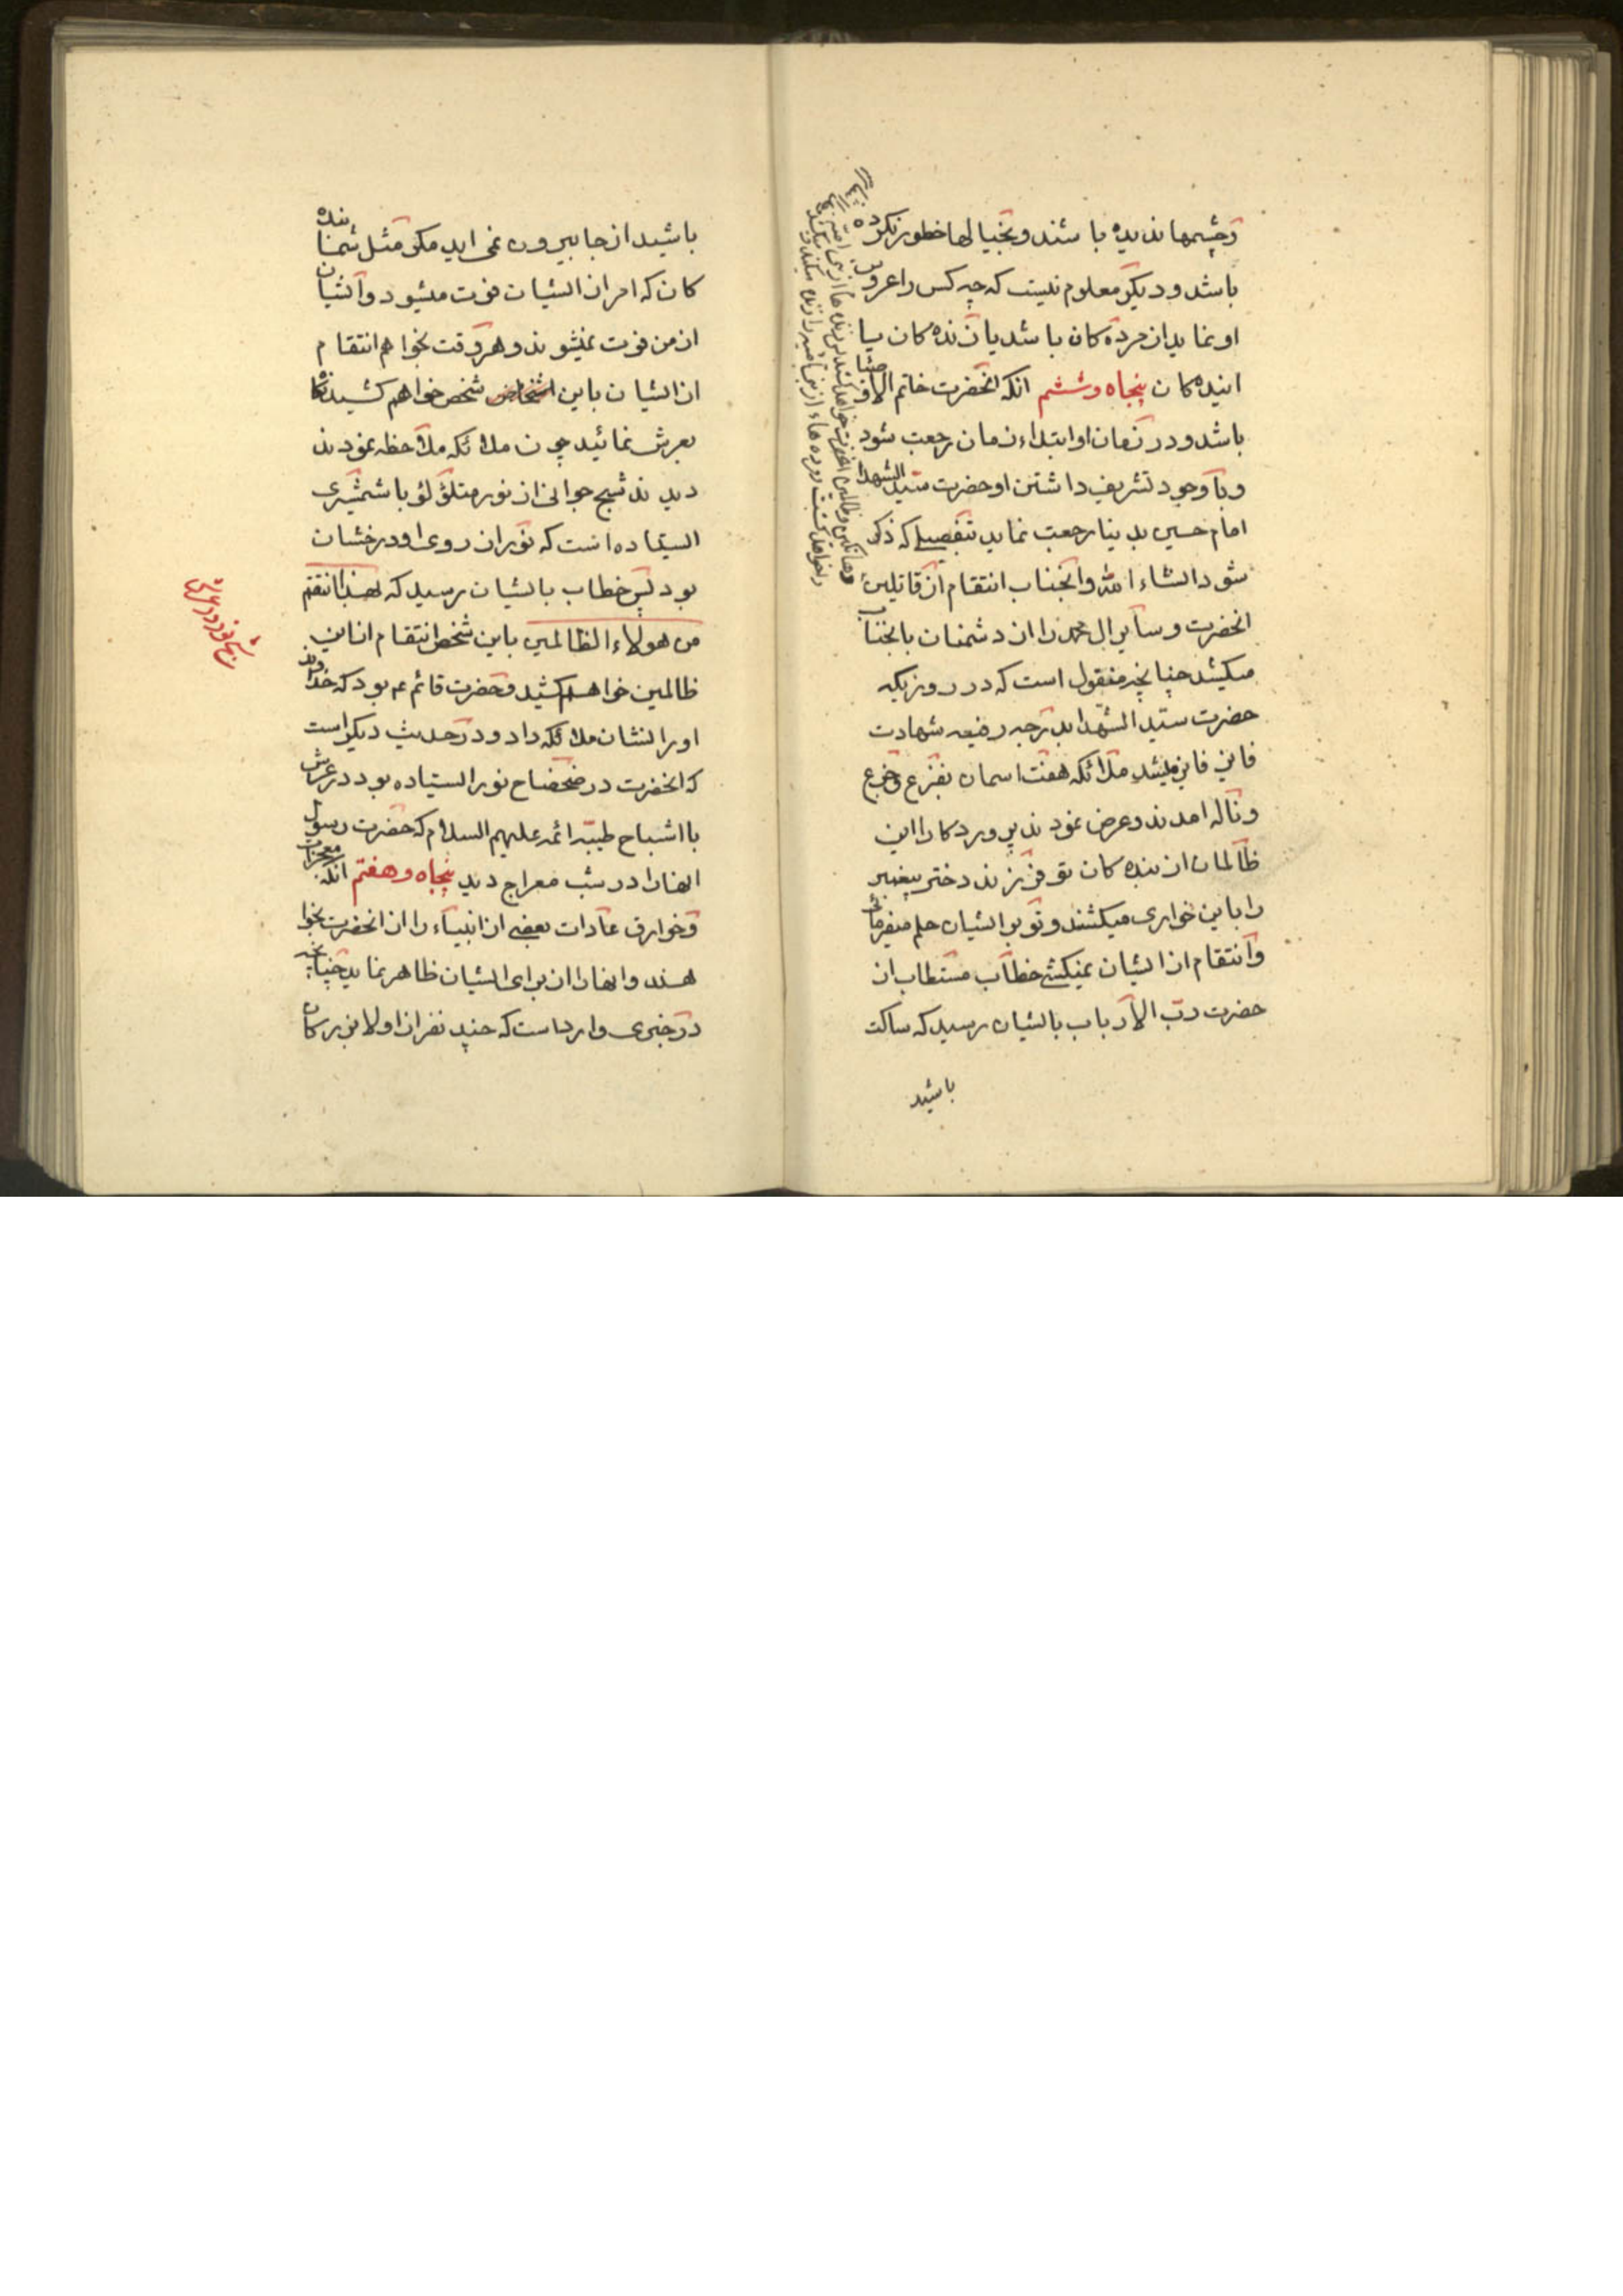 وچشمها ندیده باشند و بخیالها خطور نکرده
باشد و دیکر معلوم نیست که چه کس را عروس
او نماید از مرده کان باشد یا زنده کان یا
اینده کان پنجاه وششم انکه انحضرت خاتم الاوصیا
باشد و در زمان او ابتداء زمان رجعت شود
وبا وجود تشریف داشتن او حضرت سید الشهدا
امام حسین بدینا رجعت نماید بتفصیلی که ذکر
شود انشاء الله وانجناب انتقام از قاتلین
انحضرت و سایر ال محمد را از دشمنان بانجناب
میکشد چنانچه منقول است که در روزیکه
حضرت سید الشهدا بدرجه رفیعه شهادت
فایز میشد ملائکه هفت اسمان بفزع وجزع
وناله امدند و عرض نمودند پروردکارا این
ظالمان از بنده کان تو فرزند دختر پیغمبر
را باین خواری میکشند و تو بر ایشان حلم میفرمائی
وانتقام از ایشان نمیکشی خطاب مستطاب از
حضرت رب الارباب بایشان رسید که ساکت
باشید
باشید از جا بیرون نمی اید مکر مثل شما بنده
کان که امر از ایشان فوت میشود وایشان
از من فوت نمیشوند و هر وقت بخواهم انتقام
از ایشان باین اشخاص شخص خواهم کشید نکاه
بعرش نمائید چون ملائکه ملاحظه نمودند
دیدند شبح جوانی از نور متلؤلؤ با شمشیری
ایستاده است که نور از روی او درخشان
بود پس خطاب بایشان رسید که لهذا انتقم
من هولاء الظالمین باین شخص انتقام از این
ظالمین خواهم کشید و حضرت قائم عم بود که خداوند
او را نشان ملائکه داد و در حدیث دیکر است
که انحضرت در ضحضاح نور ایستاده بود در عرش
با اشباح طیبه ائمه علیهم السلام که حضرت رسول
انها را در شب معراج دید پنجاه و هفتم انکه معجزات
وخوارق عادات بعضی از انبیاء را از انحضرت بخوا
هند وانها را از برای ایشان ظاهر نماید چنانچه
در خبری وارد است که چند نفر از اولاد بزرکان